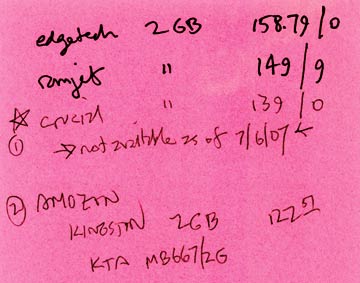 edgetech 2 GB 158.79/0
ramjet " 149/9
☆ crucial " 139/0
① → not available as of 7/6/07 ←
② AMAZON
KINGSTON 2GB 122
KTA MB667/2G